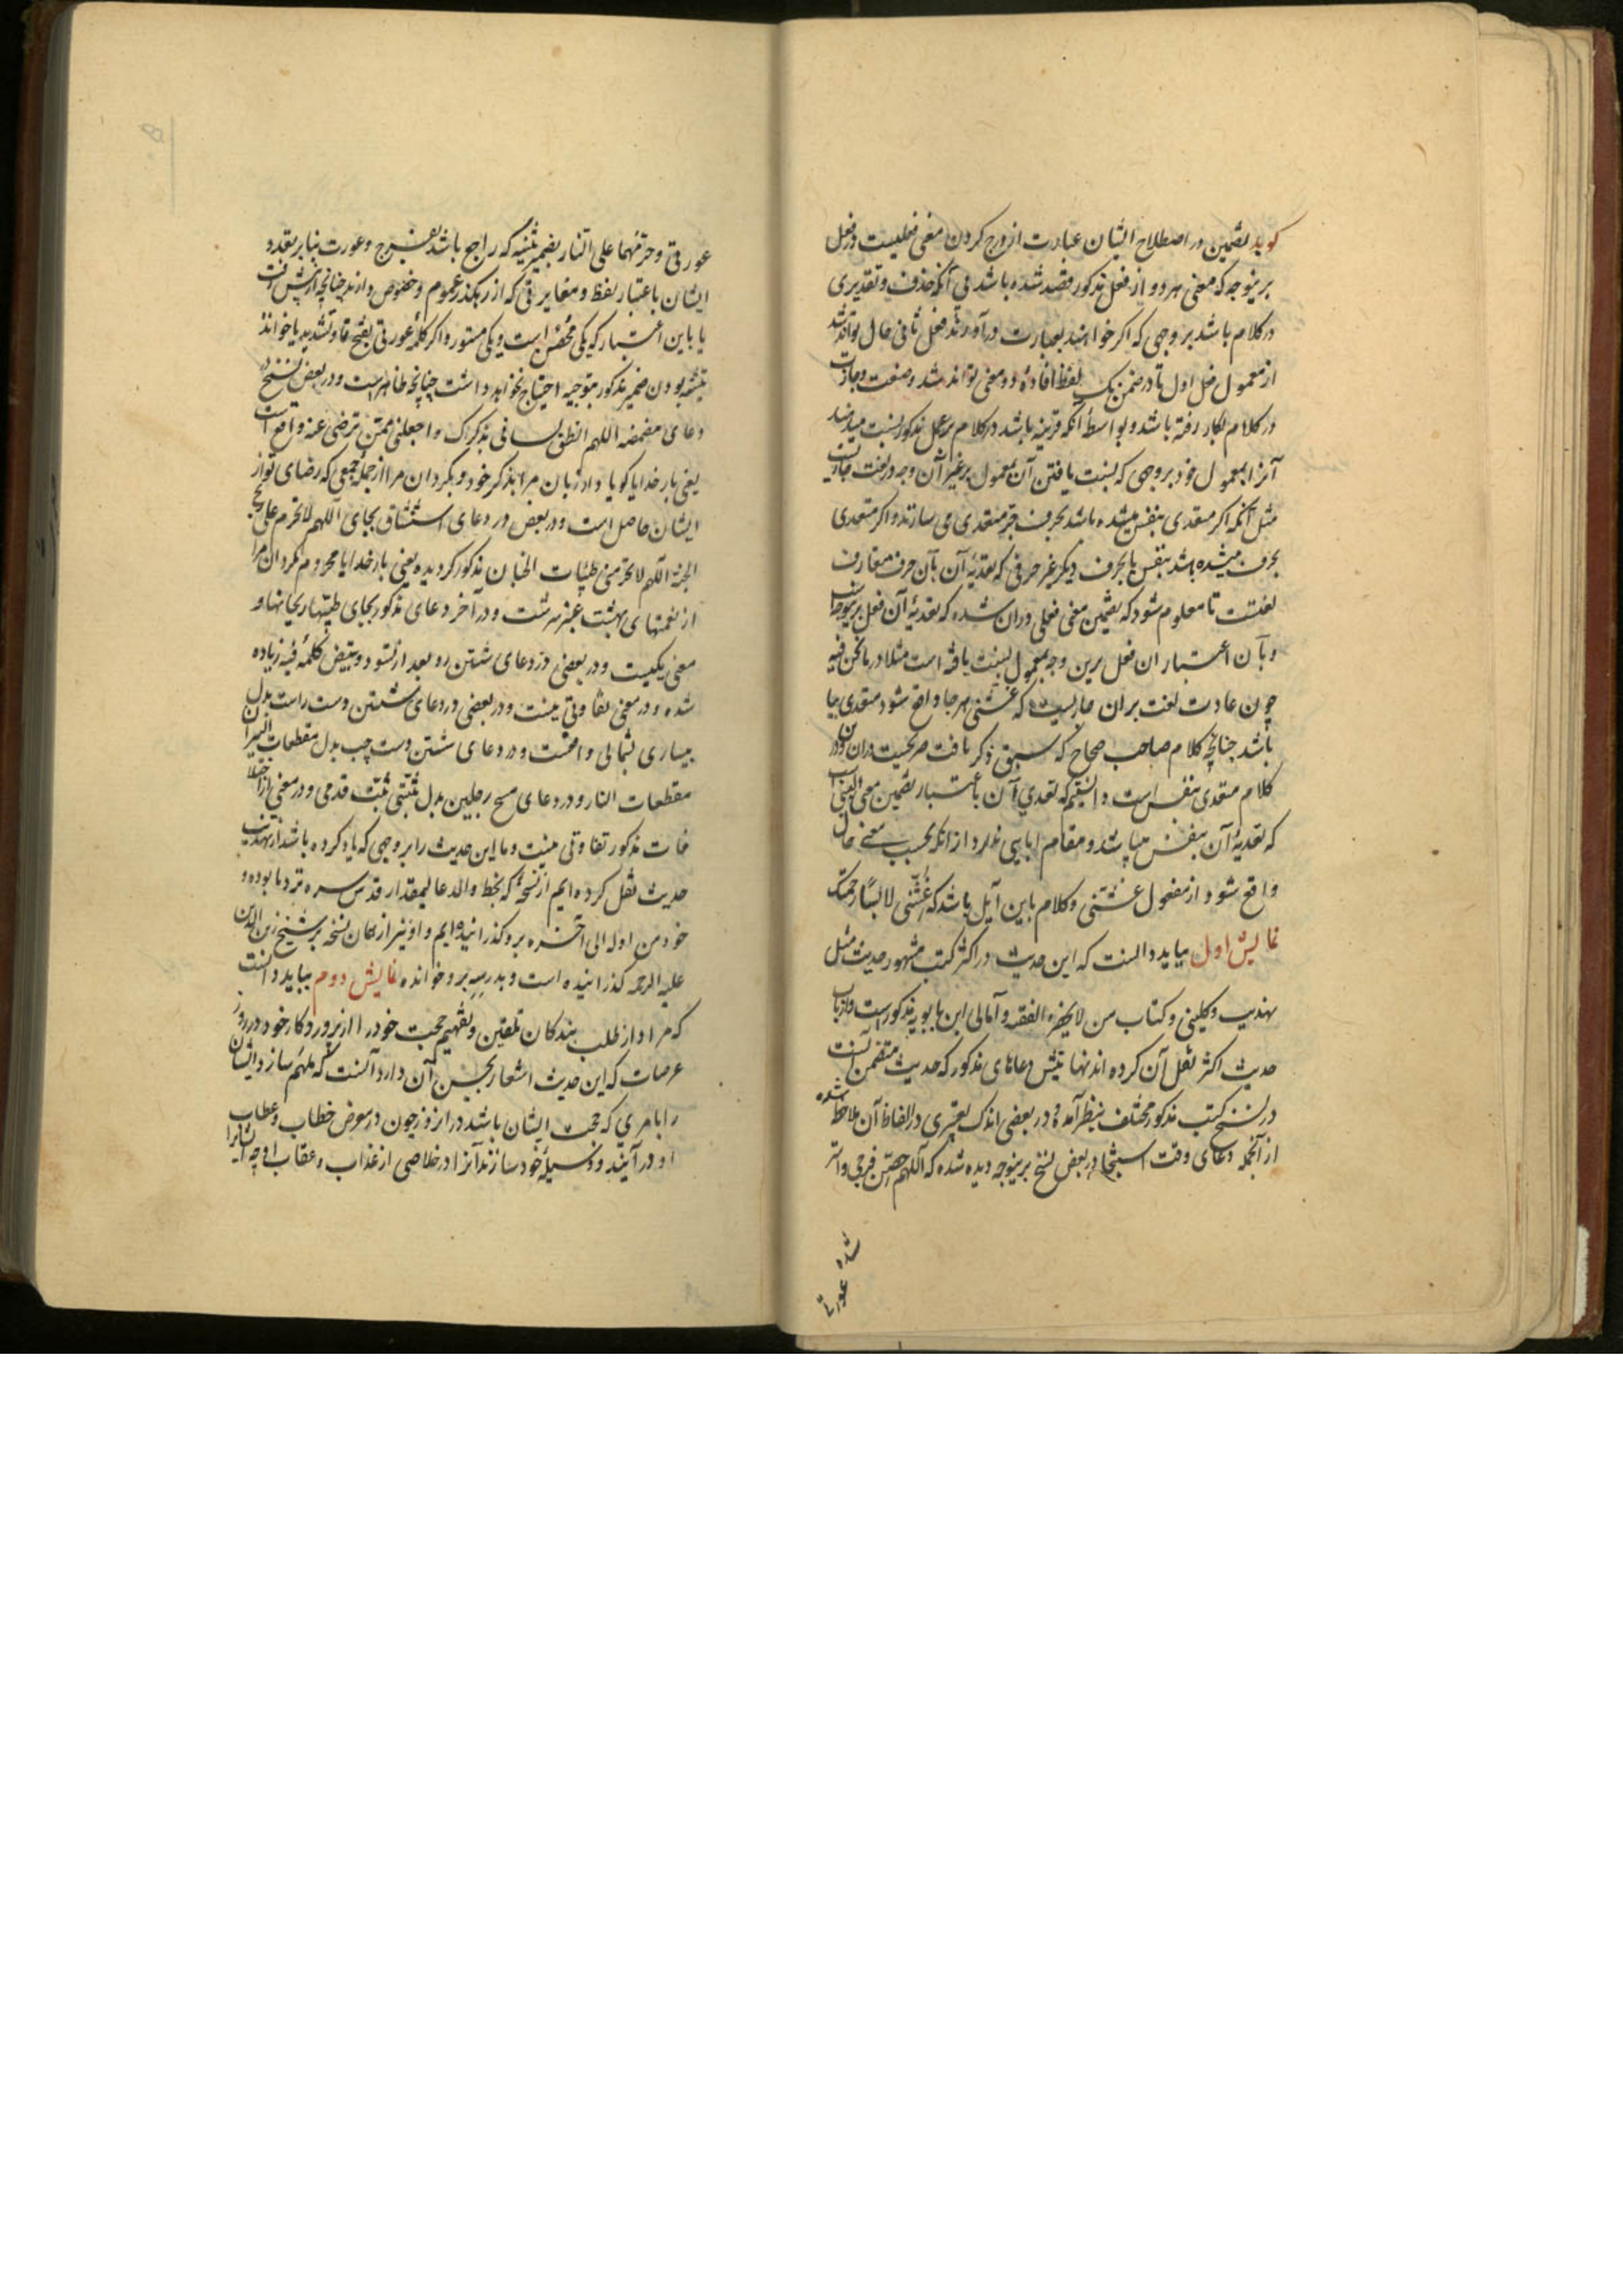 گوید تضمین در اصطلاح ایشان عبارت از درج کردن معنی فعلیست در فعل
برینوجه که معنی هر دو از فعل مذکور قصد شده باشد بی آنکه حذف و تقدیری
در کلام باشد بر وجهی که اگر خواهند بعبارت درآورند فعل ثانی حال تواند شد
از معمول فعل اول تا در ضمن یک لفظ افاده دو معنی تواند شد و صنعت
در کلام بکار رفته باشد و بواسطه آنکه قرینه باشد در کلام بر عمل مذکور نسبت میدهند
آنرا بمعمول خود بر وجهی که نسبت یافتن آن بمعمول بر غیر آن وجه در لغت
مثل آنکه اگر متعدی بنفس میشده باشد بحرف جر متعدی می سازند و اگر متعدی
بحرف میشده باشد بنفس یا بحرف دیگر غیر حرفی که تعدیه آن بآن حرف متعارف
لغتست تا معلوم شود که تضمین معنی فعلی در آن شده که تعدیه آن فعل برینوجه است
و بآن اعتبار آن فعل برین وجه بمعمول نسبت یافته است مثلا در ما نحن فیه
چون عادت لغت بر آن جاریست که غشنی هر جا واقع شود متعدی ببا
باشد چنانچه کلام صاحب صحاح که سبق ذکر یافت صریحست در آن و در
کلام متعدی بنفس است دانستیم که تعدی آن باعتبار تضمین معنی البسنی است
که تعدیه آن بنفس میباشد و مقام ابایی ندارد از آنکه بحسب معنی حال
واقع شود از مفعول غشنی و کلام باین آیل باشد که غشنی لابسا رحمتک
نمایش اول بباید دانست که این حدیث در اکثر کتب مشهور حدیث مثل
تهذیب و کلینی و کتاب من لایحضره الفقیه و امالی ابن بابویه مذکور است و ارباب
حدیث اکثر نقل آن کرده اند نهایتش دعاهای مذکور که حدیث متضمن آنست
در نسخ کتب مذکور مختلف بنظر آمده و در بعضی اندک تغییری در الفاظ آن ملاحظه شده
از آنجمله دعای وقت استنجا در بعض نسخ برینوجه دیده شده که اللهم حصن فرجی و استر
عورتی
عورتی و حرمهما علی النار بضمیر تثنیه که راجع باشد بفرج و عورت بنا بر تعدد
ایشان باعتبار لفظ و مغایرتی که از رهگذر عموم و خصوص دارند چنانچه از پیش رفت
یا باین اعتبار که یکی مخفی است و یکی مستور و اگر کلمه عورتی بفتح تا و تشدید یا خوانند
تثنیه بودن ضمیر مذکور بتوجیه احتیاج نخواهد داشت چنانچه ظاهر است و در بعض نسخ
دعای مضمضه اللهم انطق لسانی بذکرک و اجعلنی ممن ترضی عنه واقع است
یعنی بار خدایا گویا دار زبان مرا بذکر خود و بگردان مرا از جمله جمعی که رضای تو از
ایشان حاصل است و در بعض در دعای استنشاق بجای اللهم لا تحرم علی ریح
الجنة اللهم لا تحرمنی طیبات الجنان مذکور گردیده یعنی بار خدایا محروم مگردان مرا
از نعمتهای بهشت عنبر سرشت و در آخر دعای مذکور بجای طیبها ریحانها و
معنی یکیست و در بعضی در دعای شستن رو بعد از تسود و تبیض کلمه فیه زیاده
شده و در معنی تفاوتی نیست و در بعضی در دعای شستن دست راست بدل
بیساری بشمالی واقعست و در دعای شستن دست چپ بدل مقطعات النیران
مقطعات النار و در دعای مسح رجلین بدل ثبتنی ثبت قدمی و در معنی از اختلا
فات مذکور تفاوتی نیست و ما این حدیث را بر وجهی که یاد کرده باشد از تهذیب
حدیث نقل کرده ایم از نسخه که بخط والد عالیمقدار قدس سره نزد ما بوده و
خود من اوله الی آخره برو گذرانیده ایم و او نیز از همان نسخه بر شیخ زین الدین
علیه الرحمه گذرانیده است و بدرس برو خوانده نمایش دوم بباید دانست
که مراد از طلب بندگان تلقین و تفهیم حجت خود را از پروردگار خود در روز
عرصات که این حدیث اشعار بحسن آن دارد آنست که ملهم سازد ایشان
را بامری که حجت ایشان باشد در آنروز چون در معرض خطاب و عتاب
او در آیند و وسیله خود سازند آنرا در خلاصی از عذاب و عقاب او چه